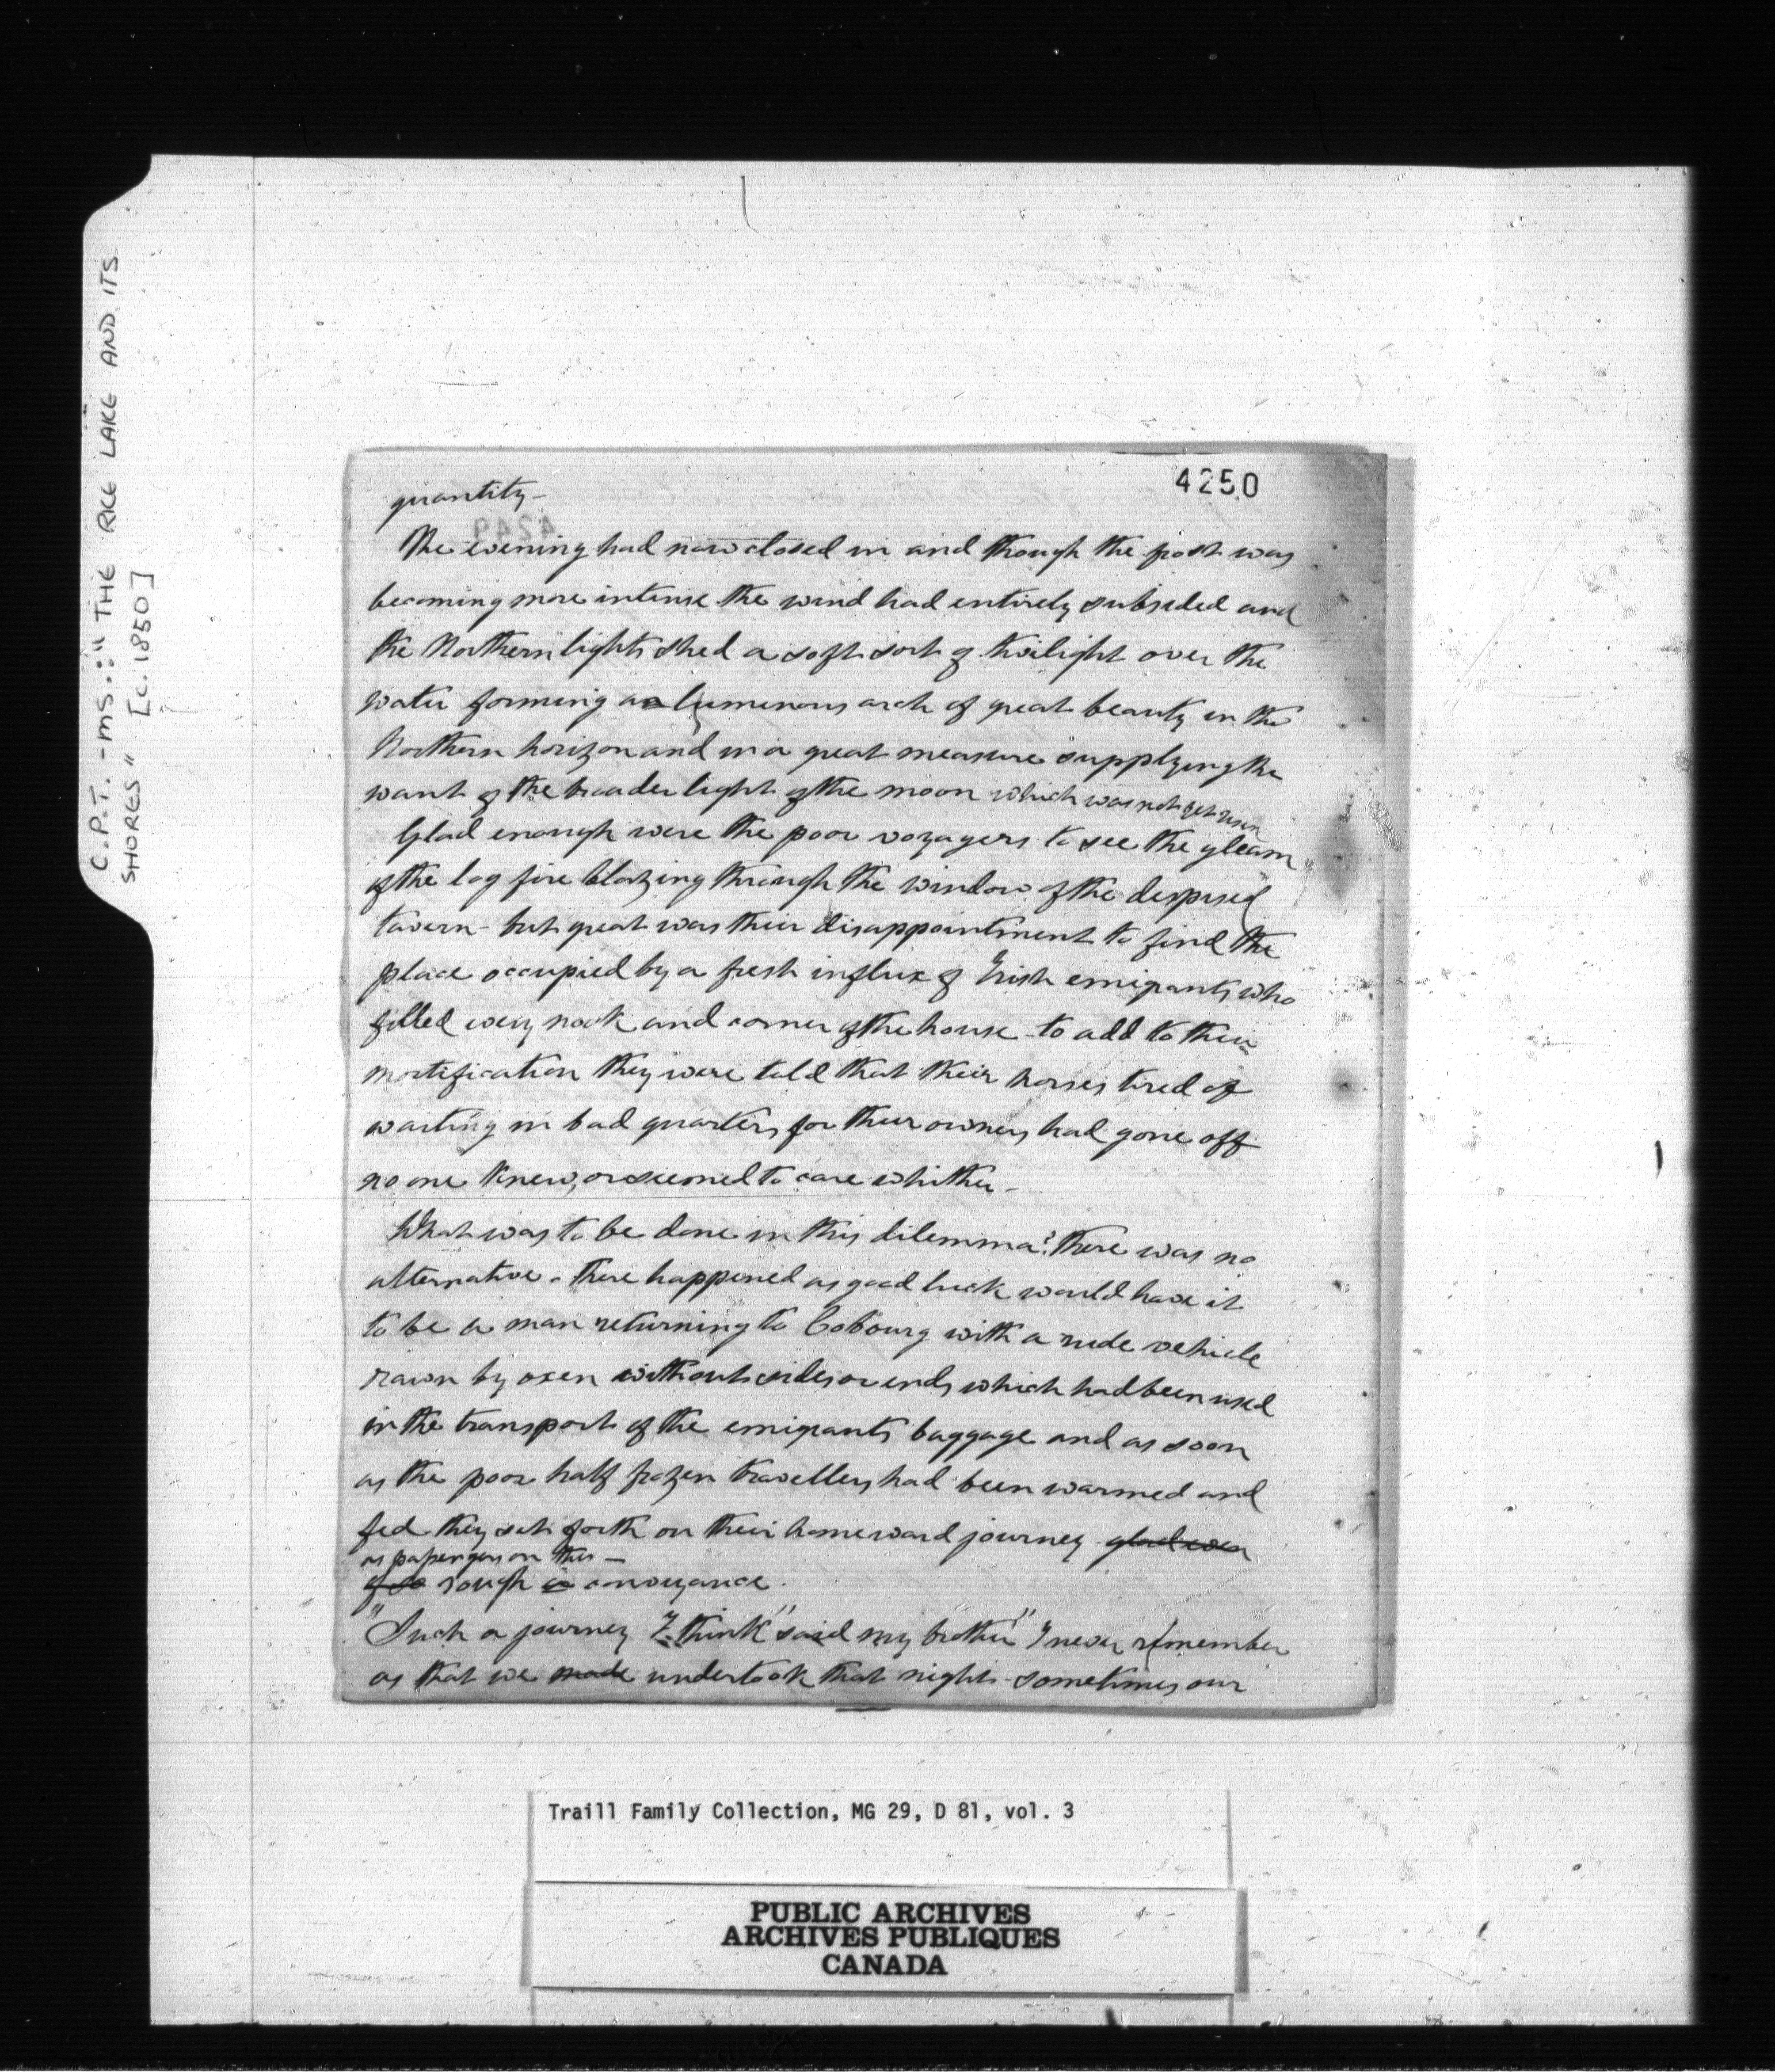 C.P.T. - MS.: "THE RICE LAKE AND ITS
SHORES" [c. 1850]
4250
quantity -
The evening had now closed in and though the frost was
becoming more intense the wind had entirely subsided and
the Northern lights shed a soft sort of twilight over the
water forming a luminous arch of great beauty in the
Northern horizon and in a great measure supplying the
want of the broader light of the moon which was not yet risen
Glad enough were the poor voyagers to see the gleam
of the log fire blazing through the window of the despised
tavern - but great was their disappointment to find the
place occupied by a fresh influx of Irish emigrants who
filled every nook and corner of the house - to add to their
mortification they were told that their horses tired of
waiting in bad quarters for their owners had gone off
no one knew, or seemed to care whither -
What was to be done in this dilemma? there was no
alternative - there happened as good luck would have it
to be a man returning to Cobourg with a rude vehicle
rawn by oxen without sides or ends which had been used
in the transport of the emigrants baggage and as soon
as the poor half frozen travellers had been warmed and
fed they set forth on their homeward journey glad even
as passengers on this -
of so rough a conveyance.
"Such a journey I think" said my brother "I never remember
as that we made undertook that night - sometimes our
Traill Family Collection, MG 29, D 81, vol. 3
PUBLIC ARCHIVES
ARCHIVES PUBLIQUES
CANADA